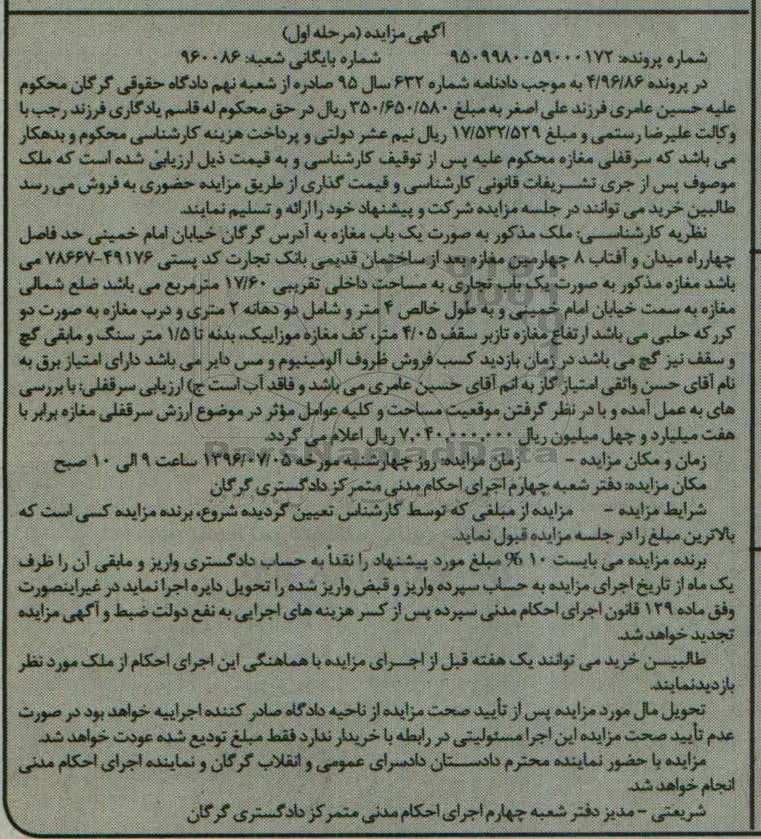 آگهی مزایده (مرحله اول)
شماره پرونده: ۹۵۰۹۹۸۰۰۵۹۰۰۰۱۷۲ شماره بایگانی شعبه: ۹۶۰۰۸۶
در پرونده ۴/۹۶/۸۶ به موجب دادنامه شماره ۶۳۲ سال ۹۵ صادره از شعبه نهم دادگاه حقوقی گرگان محکوم
علیه حسین عامری فرزند علی اصغر به مبلغ ۳۵۰/۶۵۰/۵۸۰ ریال در حق محکوم له قاسم یادگاری فرزند رجب با
وکالت علیرضا رستمی و مبلغ ۱۷/۵۳۲/۵۲۹ ریال نیم عشر دولتی و پرداخت هزینه کارشناسی محکوم و بدهکار
می باشد که سرقفلی مغازه محکوم علیه پس از توقیف کارشناسی و به قیمت ذیل ارزیابی شده است که ملک
موصوف پس از جری تشریفات قانونی کارشناسی و قیمت گذاری از طریق مزایده حضوری به فروش می رسد
طالبین خرید می توانند در جلسه مزایده شرکت و پیشنهاد خود را ارائه و تسلیم نمایند.
نظریه کارشناسی: ملک مذکور به صورت یک باب مغازه به آدرس گرگان خیابان امام خمینی حد فاصل
چهارراه میدان و آفتاب ۸ چهارمین مغازه بعد از ساختمان قدیمی بانک تجارت کد پستی ۴۹۱۷۶-۷۸۶۶۷ می
باشد مغازه مذکور به صورت یک باب تجاری به مساحت داخلی تقریبی ۱۷/۶۰ مترمربع می باشد ضلع شمالی
مغازه به سمت خیابان امام خمینی و به طول خالص ۴ متر و شامل دو دهانه ۲ متری و درب مغازه به صورت دو
کرکره حلبی می باشد ارتفاع مغازه تازیر سقف ۴/۰۵ متر، کف مغازه موزاییک، بدنه تا ۱/۵ متر سنگ و مابقی گچ
و سقف نیز گچ می باشد در زمان بازدید کسب فروش ظروف آلومینیوم و مس دایر می باشد دارای امتیاز برق به
نام آقای حسن واثقی امتیاز گاز به اسم آقای حسین عامری می باشد و فاقد آب است ج) ارزیابی سرقفلی: با بررسی
های به عمل آمده و با در نظر گرفتن موقعیت مساحت و کلیه عوامل مؤثر در موضوع ارزش سرقفلی مغازه برابر با
هفت میلیارد و چهل میلیون ریال ۷,۰۴۰,۰۰۰,۰۰۰ ریال اعلام می گردد.
زمان و مکان مزایده - زمان مزایده: روز چهارشنبه مورخه ۱۳۹۶/۰۷/۰۵ ساعت ۹ الی ۱۰ صبح
مکان مزایده: دفتر شعبه چهارم اجرای احکام مدنی متمرکز دادگستری گرگان
شرایط مزایده - مزایده از مبلغی که توسط کارشناس تعیین گردیده شروع، برنده مزایده کسی است که
بالاترین مبلغ را در جلسه مزایده قبول نماید.
برنده مزایده می بایست ۱۰ % مبلغ مورد پیشنهاد را نقداً به حساب دادگستری واریز و مابقی آن را ظرف
یک ماه از تاریخ اجرای مزایده به حساب سپرده واریز و قبض واریز شده را تحویل دایره اجرا نماید در غیراینصورت
وفق ماده ۱۲۹ قانون اجرای احکام مدنی سپرده پس از کسر هزینه های اجرایی به نفع دولت ضبط و آگهی مزایده
تجدید خواهد شد.
طالبیسن خرید می توانند یک هفته قبل از اجرای مزایده با هماهنگی این اجرای احکام از ملک مورد نظر
بازدیدنمایند.
تحویل مال مورد مزایده پس از تأیید صحت مزایده از ناحیه دادگاه صادر کننده اجراییه خواهد بود در صورت
عدم تأیید صحت مزایده این اجرا مسئولیتی در رابطه با خریدار ندارد فقط مبلغ تودیع شده عودت خواهد شد.
مزایده با حضور نماینده محترم دادستان دادسرای عمومی و انقلاب گرگان و نماینده اجرای احکام مدنی
انجام خواهد شد.
شریعتی - مدیر دفتر شعبه چهارم اجرای احکام مدنی متمرکز دادگستری گرگان
ParsNamadData